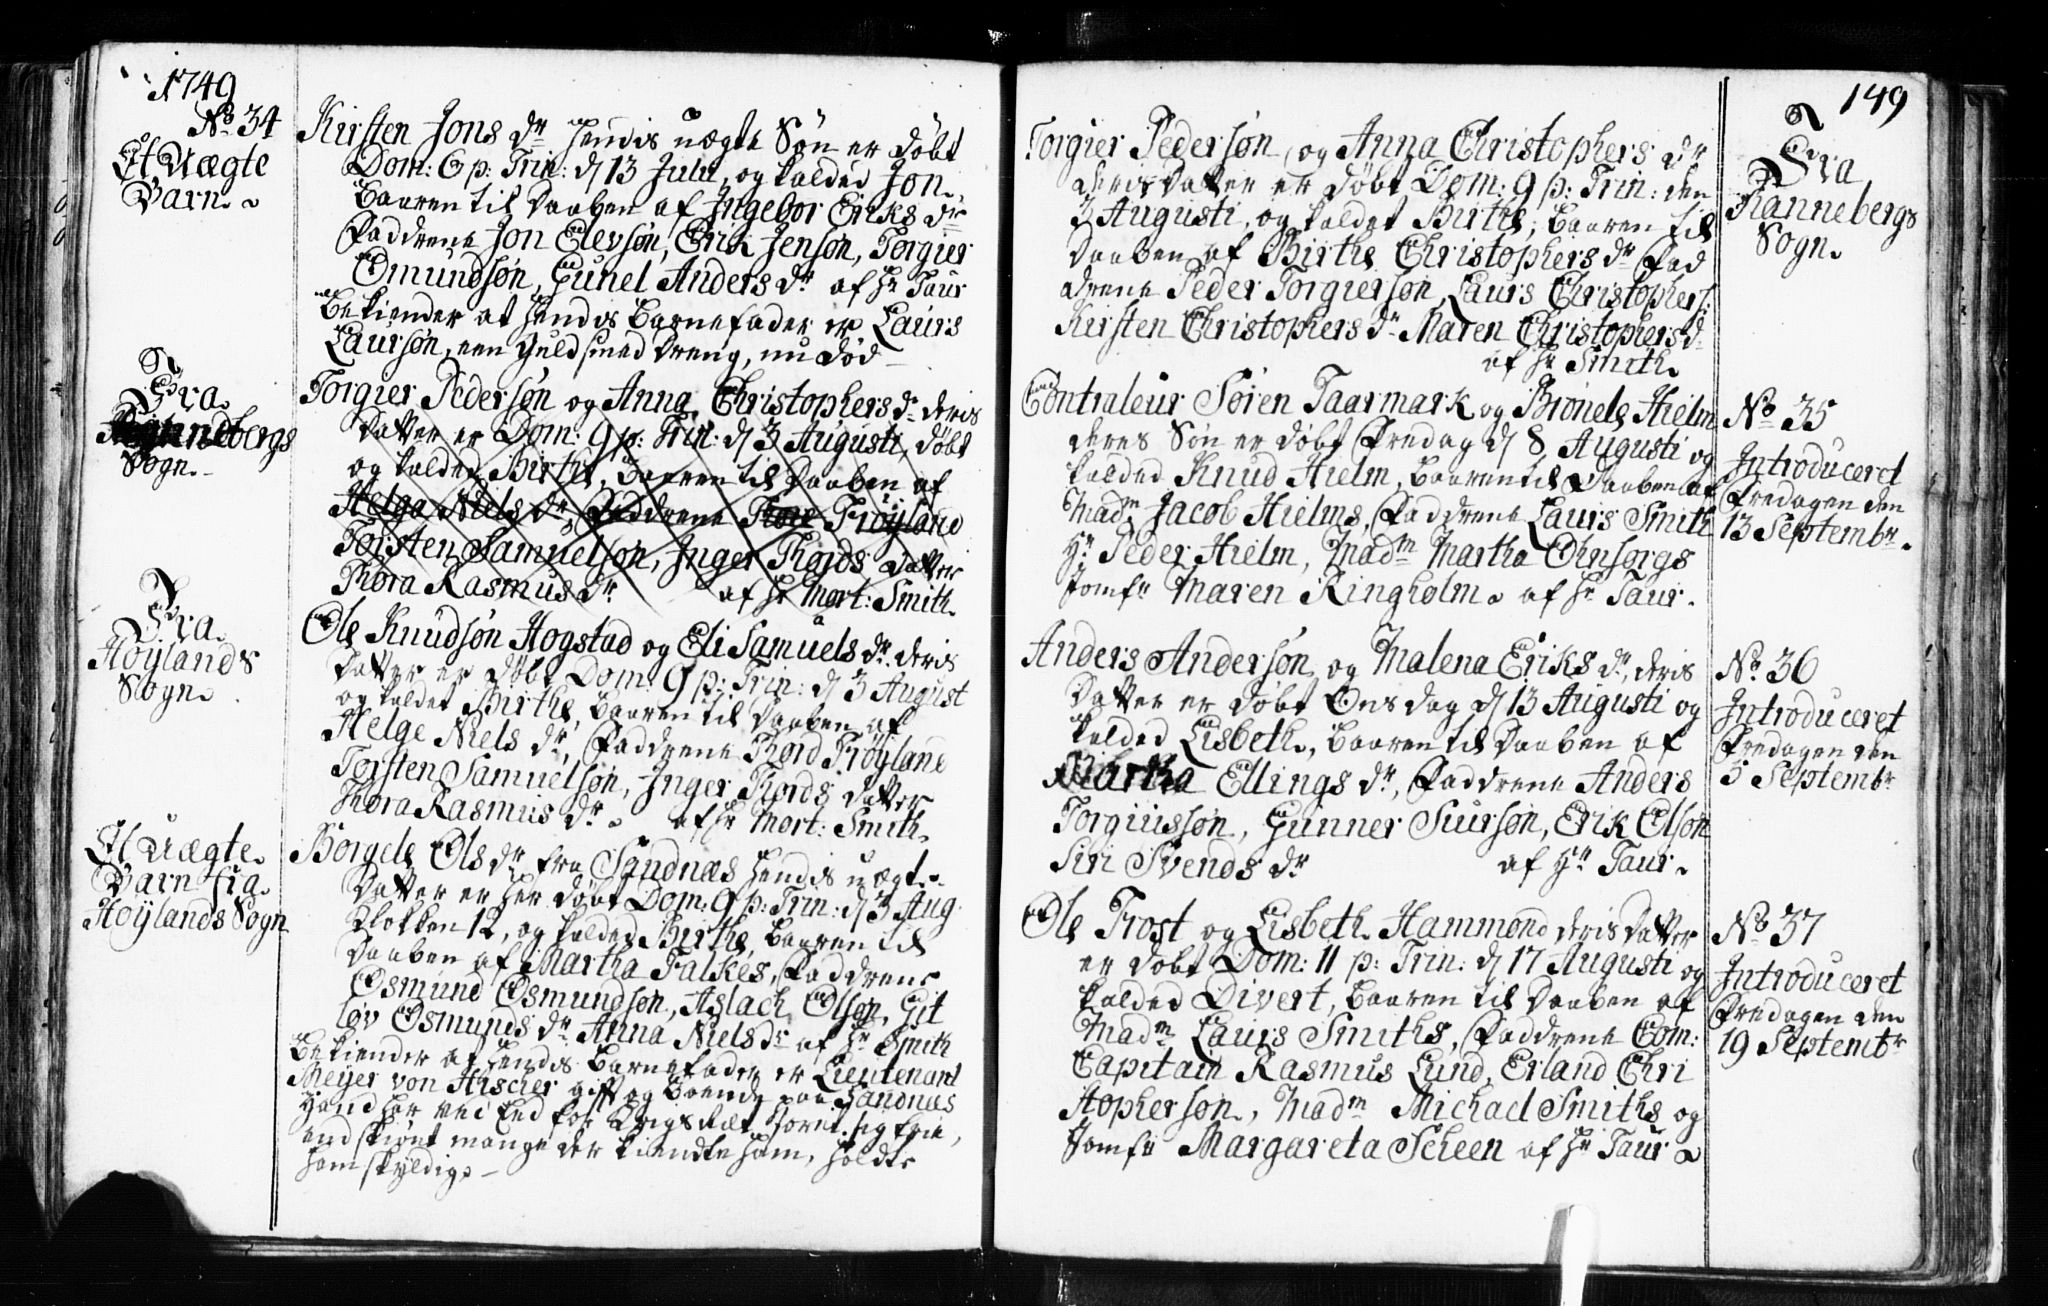 1749
No. 34
Et Uægte
Barn.
Kirsten Jons dr hendis uægte Søn er døbt
Dom: 6 p: Trin: d 13 Julii, og kalded Jon.
baaren til Daaben af Ingebor Eriks dr
Faddrene Jon Elevsøn, Erik Jensøn, Torgier
Omundsøn, Gunel Anders dr af Hr Taur
bekiender at hendis Barnefader er Laurs
Laursøn, een Guldsmed dreng, nu død
Fra
Sogn.
Torgier Pedersøn og Anna Christophers dr deris
Datter er Dom: 9 p: Trin: d 3 Augusti, døbt
og kalded Birthe, baaren til Daaben af
Helga Niels dr, Faddrene Frøyland
Torsten Samuelsøn, Inger Thords Datter
Thora Rasmus dr af Hr Mort: Smith.
Fra
Høylands
Sogn.
Ole Knudsøn Hogstad og Eli Samuels dr deris
Datter er døbt Dom: 9 p: Trin: d 3 August
og kaldet Birthe, baaren til Daaben af
Helge Niels dr, Faddrene Thord Frøyland
Torsten Samuelsøn, Inger Thords Datter
Thora Rasmus dr. af Hr Mort: Smith.
Et Uægte
Barn fra
Høylands Sogn
Børgele Ols dr fra Sandnæs hendis uægte
Datter er her døbt Dom: 9 p: Trin: d 3 Aug.
Klokken 12, og kalded Birthe, baaren til
Daaben af Martha Falkes, Faddrene
Osmund Osmundsøn, Aslach Olsøn, Git
løv Osmunds dr Anna Niels dr af Hr Smith
bekiender at hendis Barnefader er Lieutenant
Meyer von Ascher gift og boende paa Sandnæs
Hand har ved Eed for Krigsræt sig frie,
endskiønt mange der kiendte ham, holdte
ham skyldig.
149
Torgier Pedersøn, og Anna Christophers dr
deris Datter er døbt Dom: 9 p: Trin: den
3 Augusti, og kaldet Birthe; baaren til
Daaben af Birthe Christophers dr Fad
drene Peder Torgiersøn, Laurs Christophers:
Kirsten Christophers dr Maren Christophers d
af Hr Smith.
Fra
Rannebergs
Sogn.
Contraleur Søren Taarmark og Bronele Hielm
deres Søn er døbt Fredag d 8 Augusti og
kalded Knud Hielm, baaren til Daaben af
Madm Jacob Hielms, Faddrene Laurs Smith
Hr Peder Hielm, Madm Martha Ohnsorgs
Jomfr Maren Ringholm. af Hr Taur.
No 35
Introduceret
Fredagen den
13 Septembr.
Anders Andersøn og Malena Eriks dr, deris
Datter er døbt Onsdag d 13 Augusti og
kalded Lisbeth, baaren til Daaben af
Martha Ellings dr, Faddrene Anders
Torgiussøn, Gunner Siursøn, Erik Olsøn
Siri Svends dr af Hr Taur.
No 36
Introduceret
Fredagen den
5 Septembr
Ole Frost og Lisbeth Hammond deris Datter
er døbt Dom: 11 p: Trin: d 17 Augusti og
kalded Divert, baaren til Daaben af
Madm Laurs Smiths, Faddrene Com:
Capitain Rasmus Lund, Erland Chri
stophersøn, Madm Michael Smiths og
Jomfr Margareta Scheen af Hr Taur
No 37
Introduceret
Fredagen den
19 Septembr